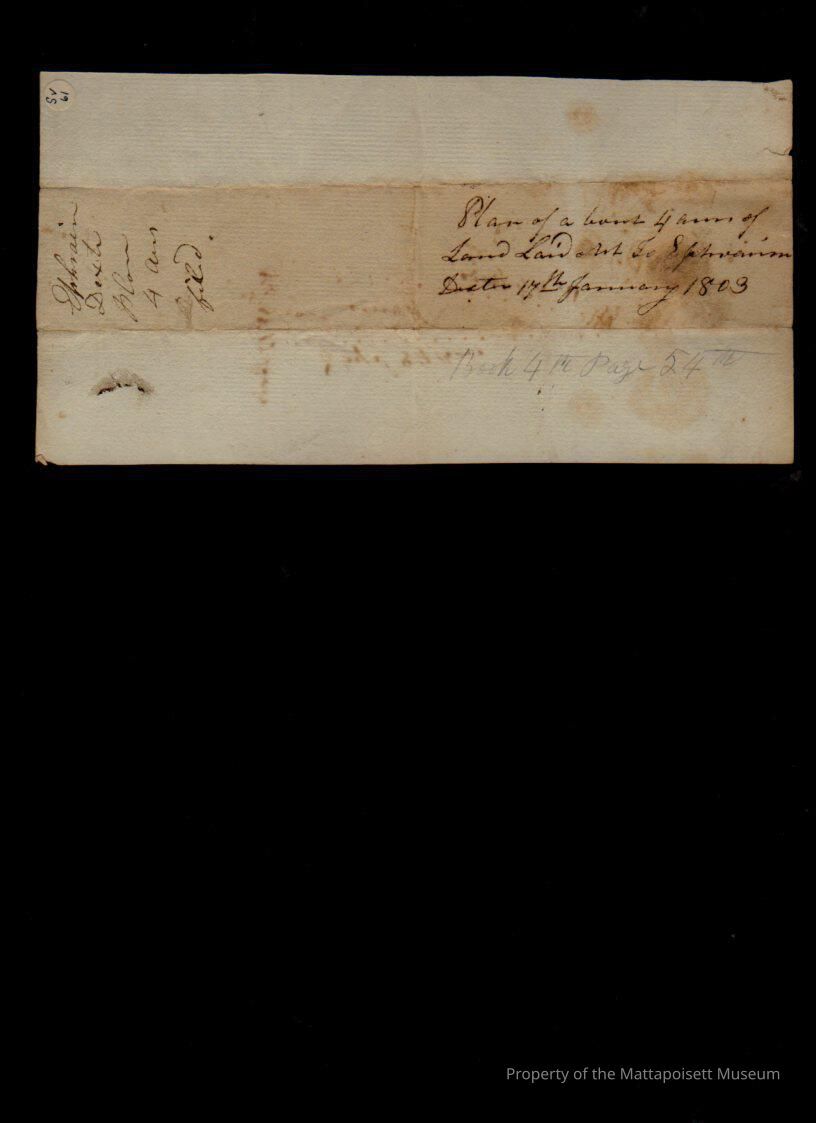 SV
19
Ephraim
Dexter
Plan
4 acres
filed.
Plan of a bout 4 acres of
Land Laid out To Ephraim
Dexter 17th January 1803
Book 4th Page 54th
Property of the Mattapoisett Museum